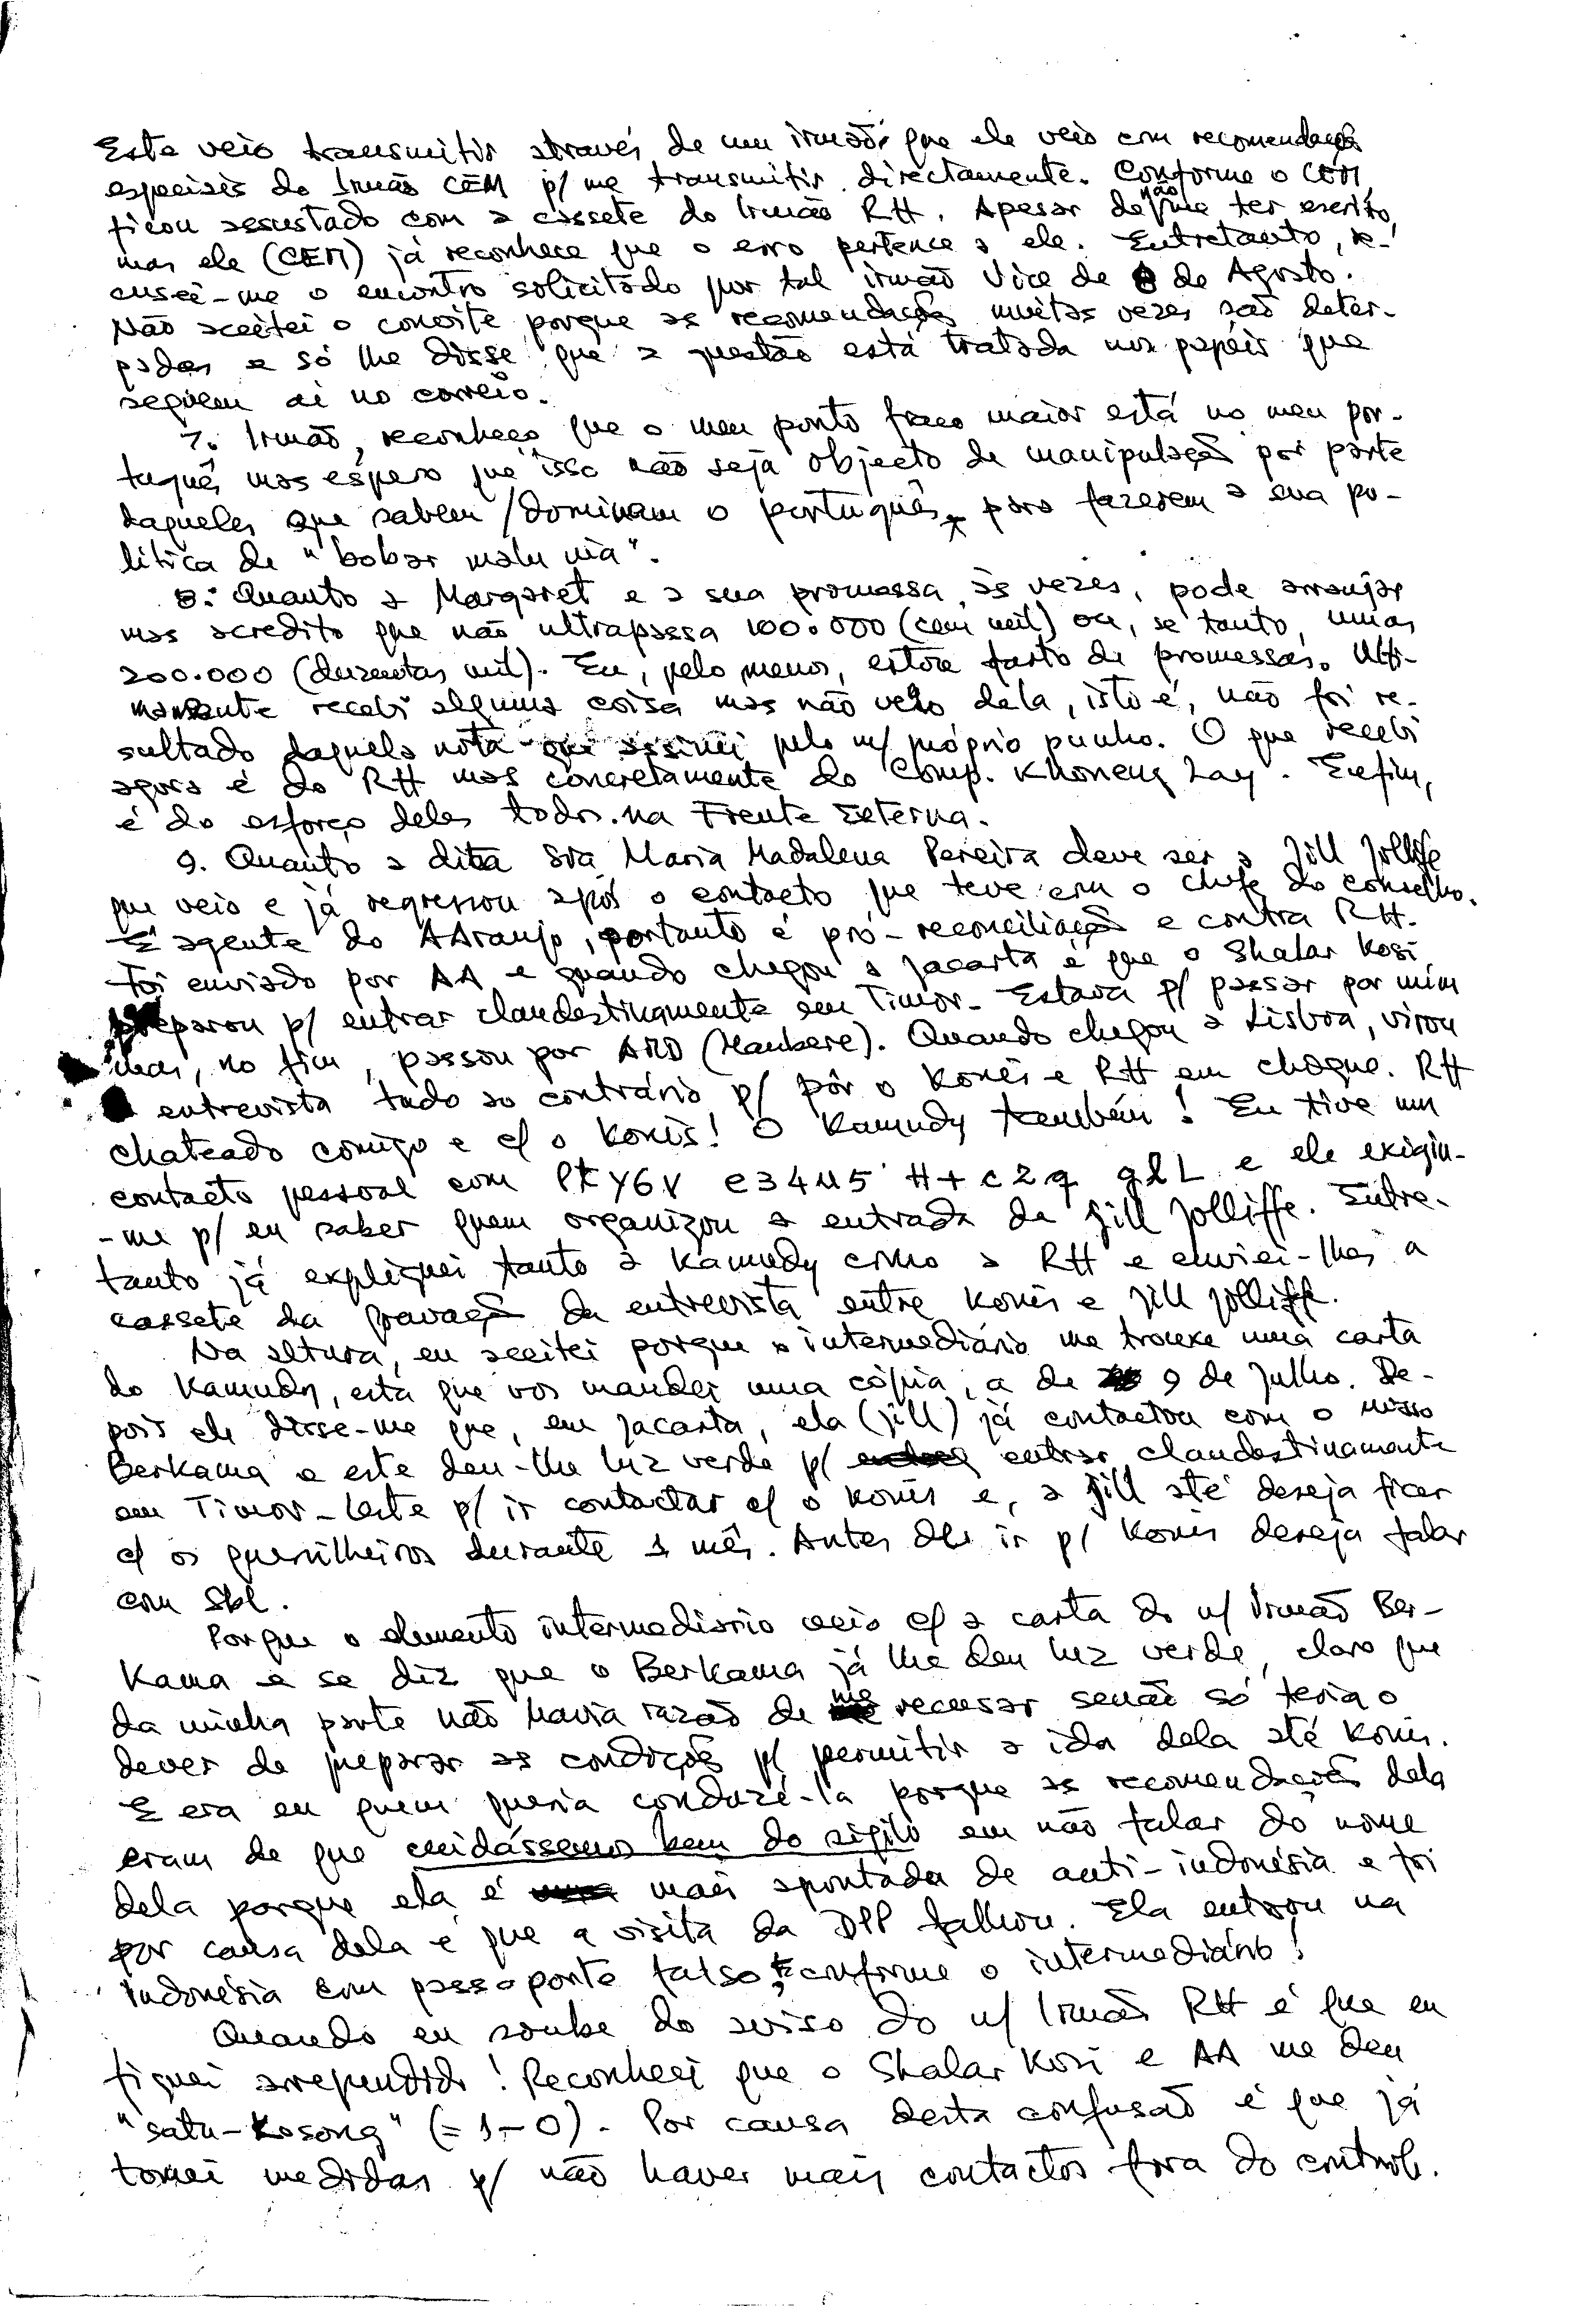 Este veio transmitir através de um irmão que ele veio com recomendações
especiais do Irmão CEM p/ me transmitir directamente. Conforme o CEM,
ficou assustado com a cassete do Irmão RH. Apesar de não me ter escrito,
mas ele (CEM) já reconhece que o erro pertence a ele. Entretanto, re-
cusei-me o encontro solicitado por tal irmão Vice de 8 de Agosto.
Não aceitei o convite porque as recomendações muitas vezes são deter-
padas e só lhe disse que a questão está tratada nos papéis que
seguem aí no correio.
7. Irmão, reconheço que o meu ponto fraco maior está no meu por-
tuguês mas espero que isso não seja objecto de manipulação por parte
daqueles que sabem/dominam o português para fazerem a sua po-
lítica de "bobar malu nia".
8. Quanto a Margaret e a sua promessa, às vezes, pode arranjar
mas acredito que não ultrapassa 100.000 (cem mil) ou, se tanto, umas
200.000 (duzentas mil). Eu, pelo menos, estou farto de promessas. Ulti-
mamente recebi alguma coisa mas não veio dela, isto é, não foi re-
sultado daquela nota que assinei pelo m/ próprio punho. O que recebi
agora é do RH mas concretamente do Comp. Khoneng Lay. Enfim,
é do esforço deles todos na Frente Externa.
9. Quanto a dita Sra Maria Madalena Pereira deve ser a Jill Jolliffe
que veio e já regressou após o contacto que teve com o chefe do conselho.
É agente do AAraujo, portanto é pró-reconciliação e contra RH.
Foi enviado por AA e quando chegou a Jacarta é que o Shalar Kosi
preparou p/ entrar clandestinamente em Timor. Estava p/ passar por mim
mas, no fim, passou por AMD (Maubere). Quando chegou a Lisboa, virou
entrevista tudo ao contrário p/ pôr o Konis e RH em choque. RH
chateado comigo e c/ o Konis! O Kamudy também! Eu tive um
contacto pessoal com PKY6V e34U5 H+c2q q&L e ele exigiu-
-me p/ eu saber quem organizou a entrada da Jill Jolliffe. Entre-
tanto já expliquei tanto a Kamudy como a RH e enviei-lhes a
cassete da gravação da entrevista entre Konis e Jill Jolliffe.
Na altura, eu aceitei porque o intermediário me trouxe uma carta
do Kamudy, esta que vos mandei uma cópia, a de 9 de Julho. De-
pois ele disse-me que, em Jacarta, ela (Jill) já contactou com o nosso
Berkama e este deu-lhe luz verde p/ entrar clandestinamente
em Timor-Leste p/ ir contactar c/ o Konis e, a Jill até deseja ficar
c/ os guerrilheiros durante 1 mês. Antes de ir p/ Konis deseja falar
com Sbl.
Porque o elemento intermediário veio c/ a carta do n/ Irmão Ber-
kama e se diz que o Berkama já lhe deu luz verde, claro que
da minha parte não havia razão de me recusar senão só teria o
dever de preparar as condições p/ permitir a ida dela até Konis.
E era eu quem queria conduzi-la porque as recomendações dela
eram de que cuidássemos bem do sigilo em não falar do nome
dela porque ela é mais apontada de anti-indonésia e foi
por causa dela é que a visita da DPP falhou. Ela entrou na
Indonésia com passaporte falso, conforme o intermediário!
Quando eu soube do aviso do n/ Irmão RH é que eu
fiquei arrependido! Reconheci que o Shalar Kosi e AA me deu
"satu-kosong" (=1-0). Por causa desta confusão é que já
tomei medidas p/ não haver mais contactos fora do controle.